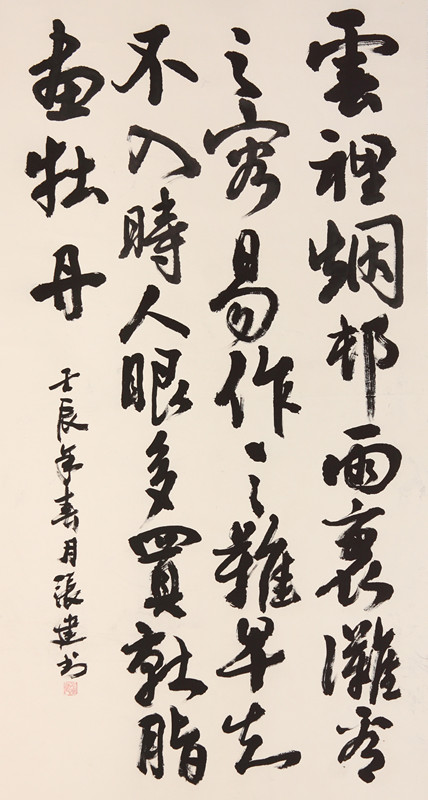 雲裡烟邨雨裏灘看
之容易作之難早知
不入時人眼多買脂
畫牡丹
壬辰年春月張建